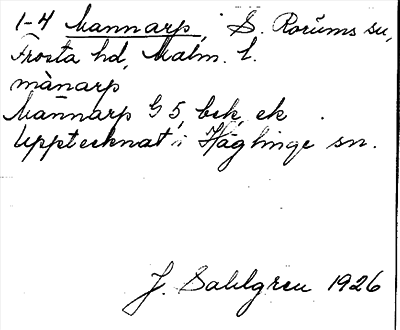 1-4 Mannarp, S. Rörums sn,
Frosta hd, Malm. l.
mànarp
Mannarp G 5, bek, ek
Upptecknat i Häglinge sn.
J. Sahlgren 1926